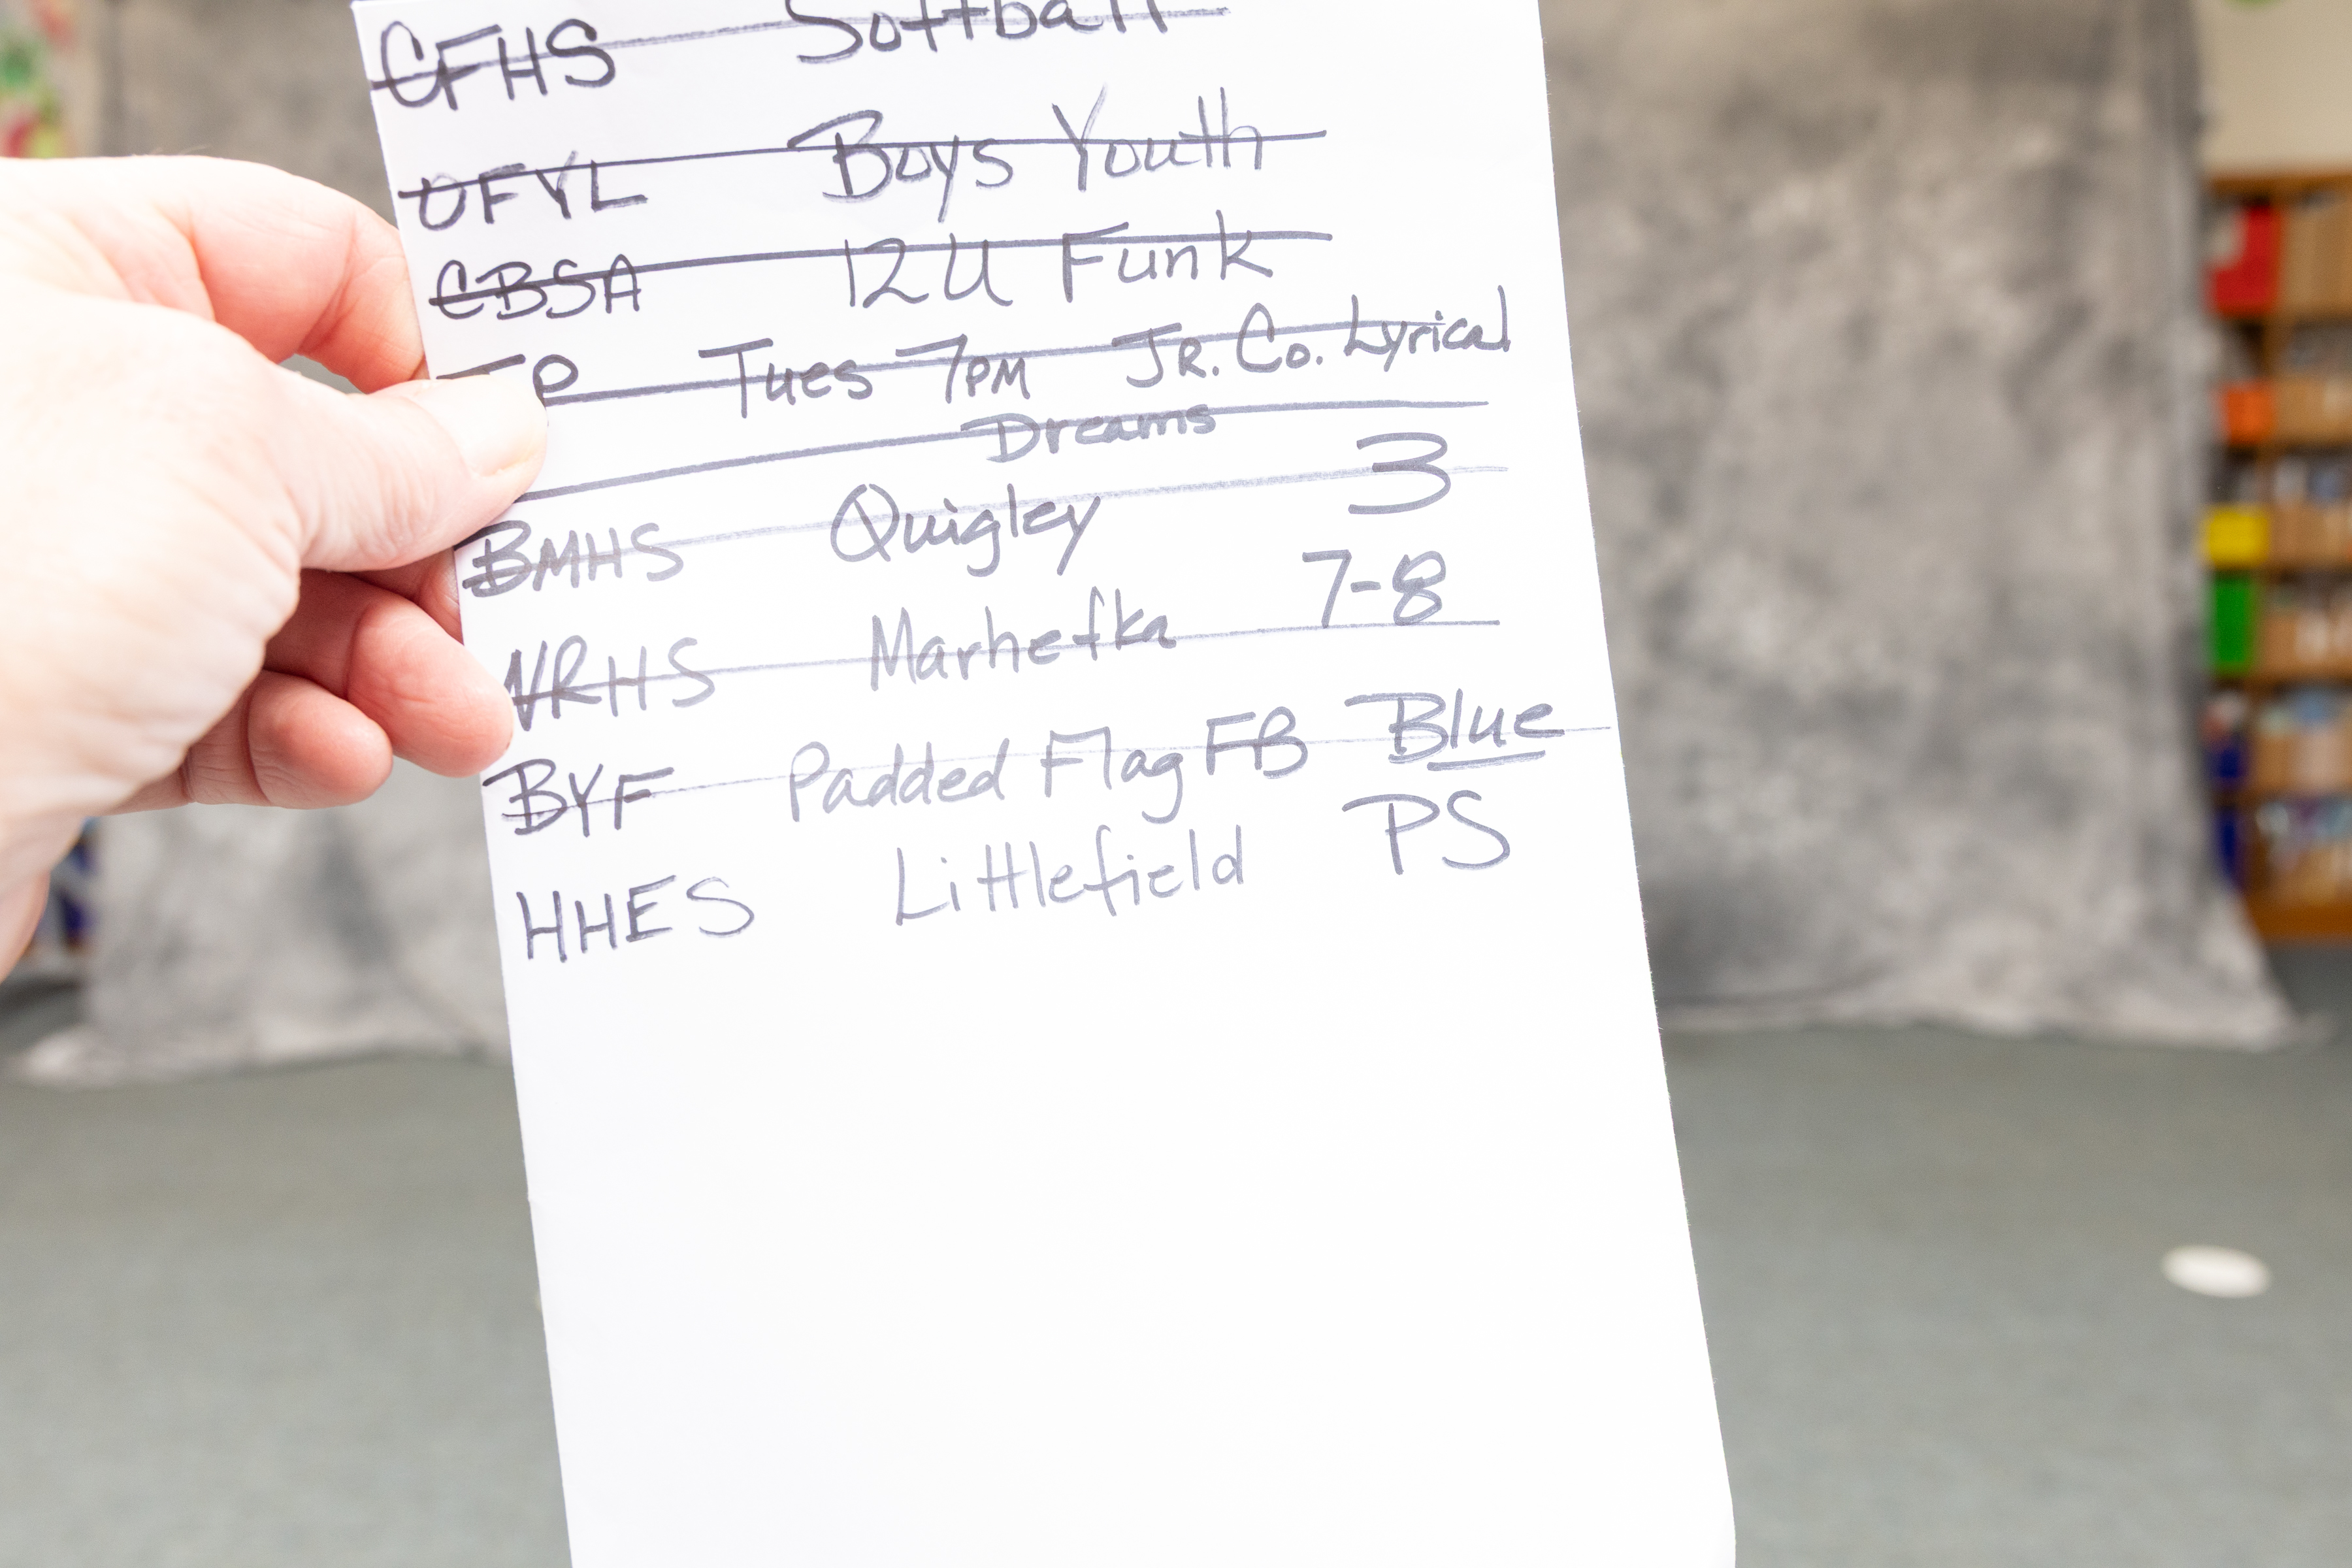 CFHS Softball
OFYL Boys Youth
CBSA 12U Funk
Tues 7PM JR. Co. Lyrical
Dreams
BMHS Quigley 3
NRHS Marhefka 7-8
BYF Padded Flag FB Blue
HHES Littlefield PS